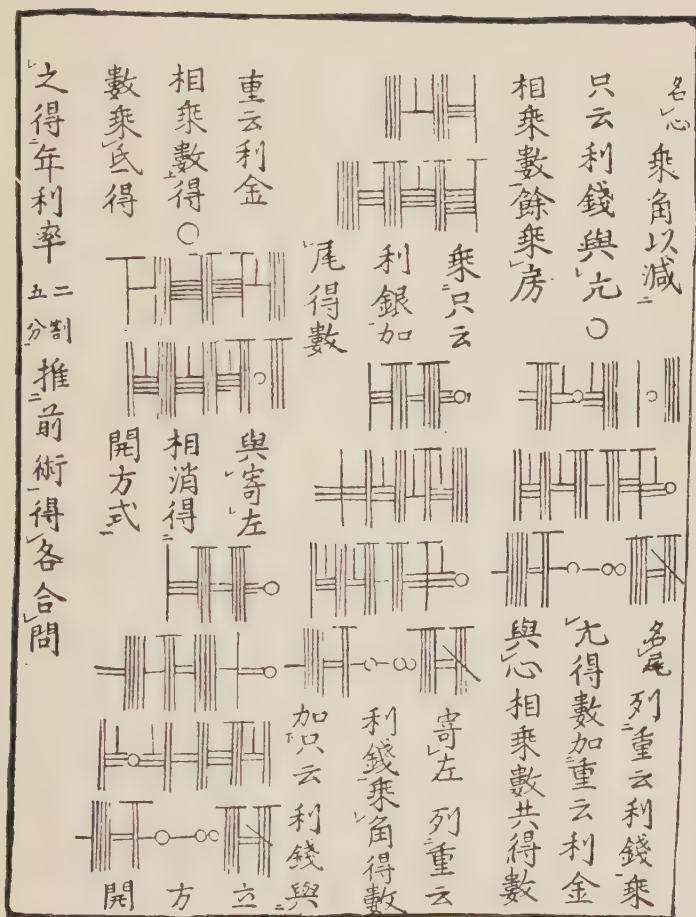 名心
乗角以減
只云利錢與亢〇
相乗數餘乗房
名尾
列重云利錢乗
亢得數加重云利金
與心相乗數共得數
乗只云
利銀加
尾得數
寄左 列重云
利錢乗角得數
加只云利錢與
重云利金
相乗數得〇
數乗氐得
與寄左
相消得
開方式
立
方
開
之得年利率 二割五分 推前術得各合問